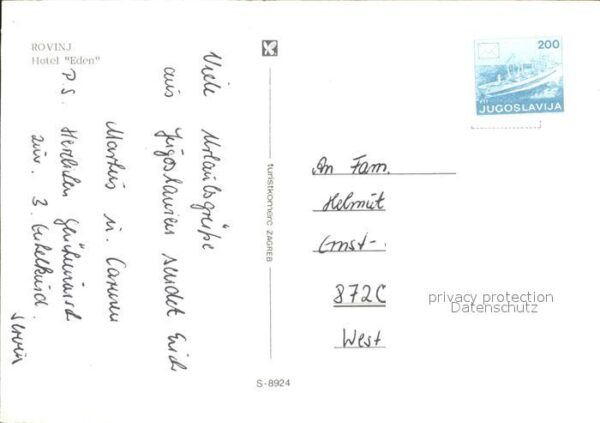 ROVINJ
Hotel "Eden"
Viele Urlaubsgrüße
aus Jugoslawien sendet Euch
Markus u. Carmen
P.S. Herzlichen Glückwunsch
zum 3. Enkelkind.
turistkomerc ZAGREB
S-8924
200
JUGOSLAVIJA
An Fam.
Helmut
Ernst-
872C
West
privacy protection
Datenschutz